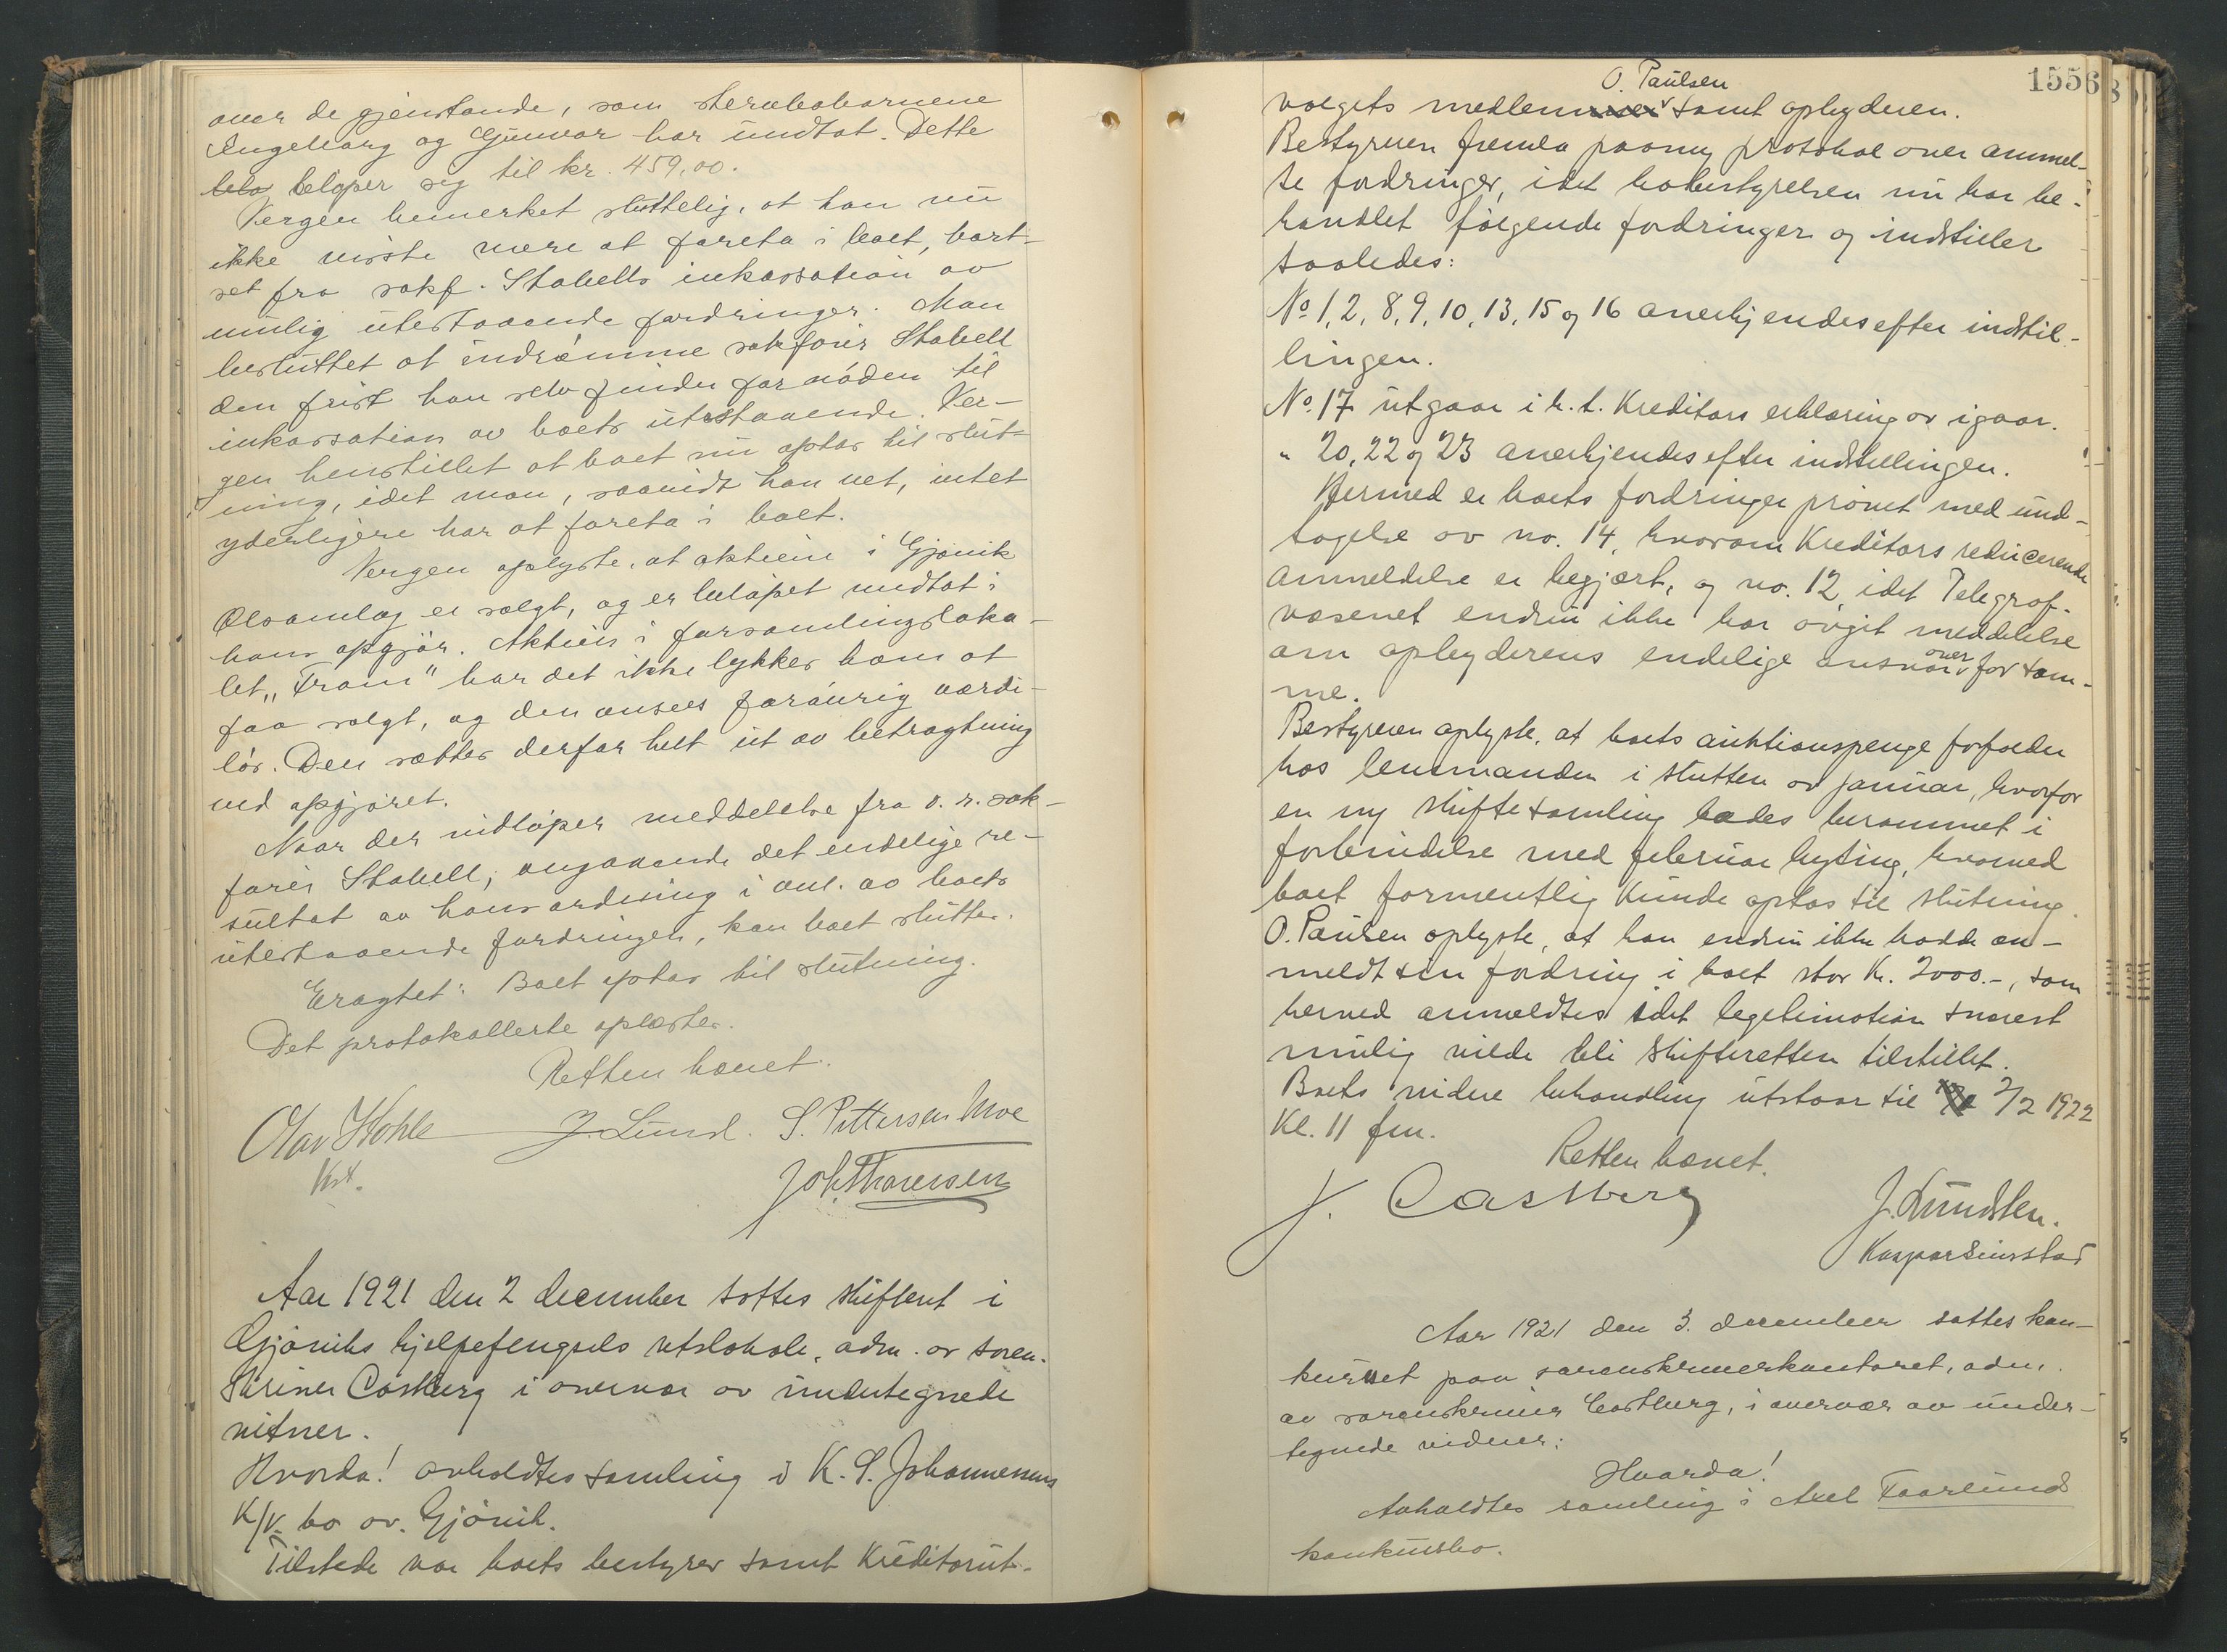 over de gjenstande, som stervbobarnene
Ingeborg og Gunvor har undtat. Dette
belø beløper sig til kr. 459,00.
Vergen bemerket sluttelig, at han nu
ikke visste mere at foreta i boet, bort-
set fra sakf. Stabells inkassation av
mulig utestaaende fordringer. Man
besluttet at indrømme sakfører Stabell
den frist han selv finder fornøden til
inkassation av boets utestaaende. Ver-
gen henstillet at boet nu optas til slut-
ning, idet man, saavidt han vet, intet
yderligere har at foreta i boet.
Vergen oplyste, at aktien i Gjøvik
Ølsamlag er solgt, og er beløpet medtat i
hans opgjør. Aktien i forsamlingsloka-
let „Fram" har det ikke lykkes ham at
faa solgt, og den ansees forøvrig værdi-
løs. Den sættes derfor helt ut av betragtning
ved opgjøret.
Naar der indløper meddelelse fra o.r.sak-
fører Stabell, angaaende det endelige re-
sultat av hans ordning i anl. av boets
utestaaende fordringer, kan boet sluttes.
Eragtet: Boet optas til slutning.
Det protokollerte oplæstes.
Retten hævet.
Olav Hohle J. Lund. S. Pettersen Moe
Kst. Joh Thoresen
Aar 1921 den 2 december sattes skifteret i
Gjøviks hjelpefengsels retslokale, adm. av soren-
skriver Castberg i overvær av undertegnede
vitner.
Hvorda! avholdtes samling i K. S. Johannesens
K/K. bo av. Gjøvik.
Tilstede var boets bestyrer samt Kreditorut-
1556
O. Paulsen
valgets medlemmer samt opbyderen.
Bestyreren fremla paany protokol over anmel-
te fordringer, idet bobestyrelsen nu har be-
handlet følgende fordringer og indstiller
saaledes:
No 1, 2, 8, 9, 10, 13, 15 og 16 anerkjendes efter indstil-
lingen.
No. 17 utgaar i h. t. Kreditors erklæring av igaar.
" 20, 22 og 23 anerkjendes efter indstillingen.
Hermed er boets fordringer prøvet med und-
tagelse av no. 14, hvorom Kreditors reducerende
anmeldelse er begjært, og no. 12, idet Telegraf-
væsenet endnu ikke har avgit meddelelse
om opbyderens endelige ansvar over for sam-
me.
Bestyreren oplyste, at boets auktionspenge forfalder
hos lensmanden i slutten av januar, hvorfor
en ny skiftesamling bædes berammet i
forbindelse med februar byting, hvorved
boet formentlig kunde optas til slutning.
O. Paulsen oplyste, at han endnu ikke hadde an-
meldt sin fordring i boet stor Kr. 2000.-, som
herved anmeldtes idet legitimation snarest
mulig vilde bli skifteretten tilstillet.
Boets videre behandling utstaar til 2/2 1922
Kl. 11 fm.
Retten hævet.
J. Castberg J. Lundsten.
Kaspar Simstad
Aar 1921 den 3. december sattes kon-
kursret paa sorenskriverkontoret, adm.
av sorenskriver Castberg, i overvær av under-
tegnede vidner:
Hvorda!
Avholdtes samling i Axel Faarlund
konkursbo.